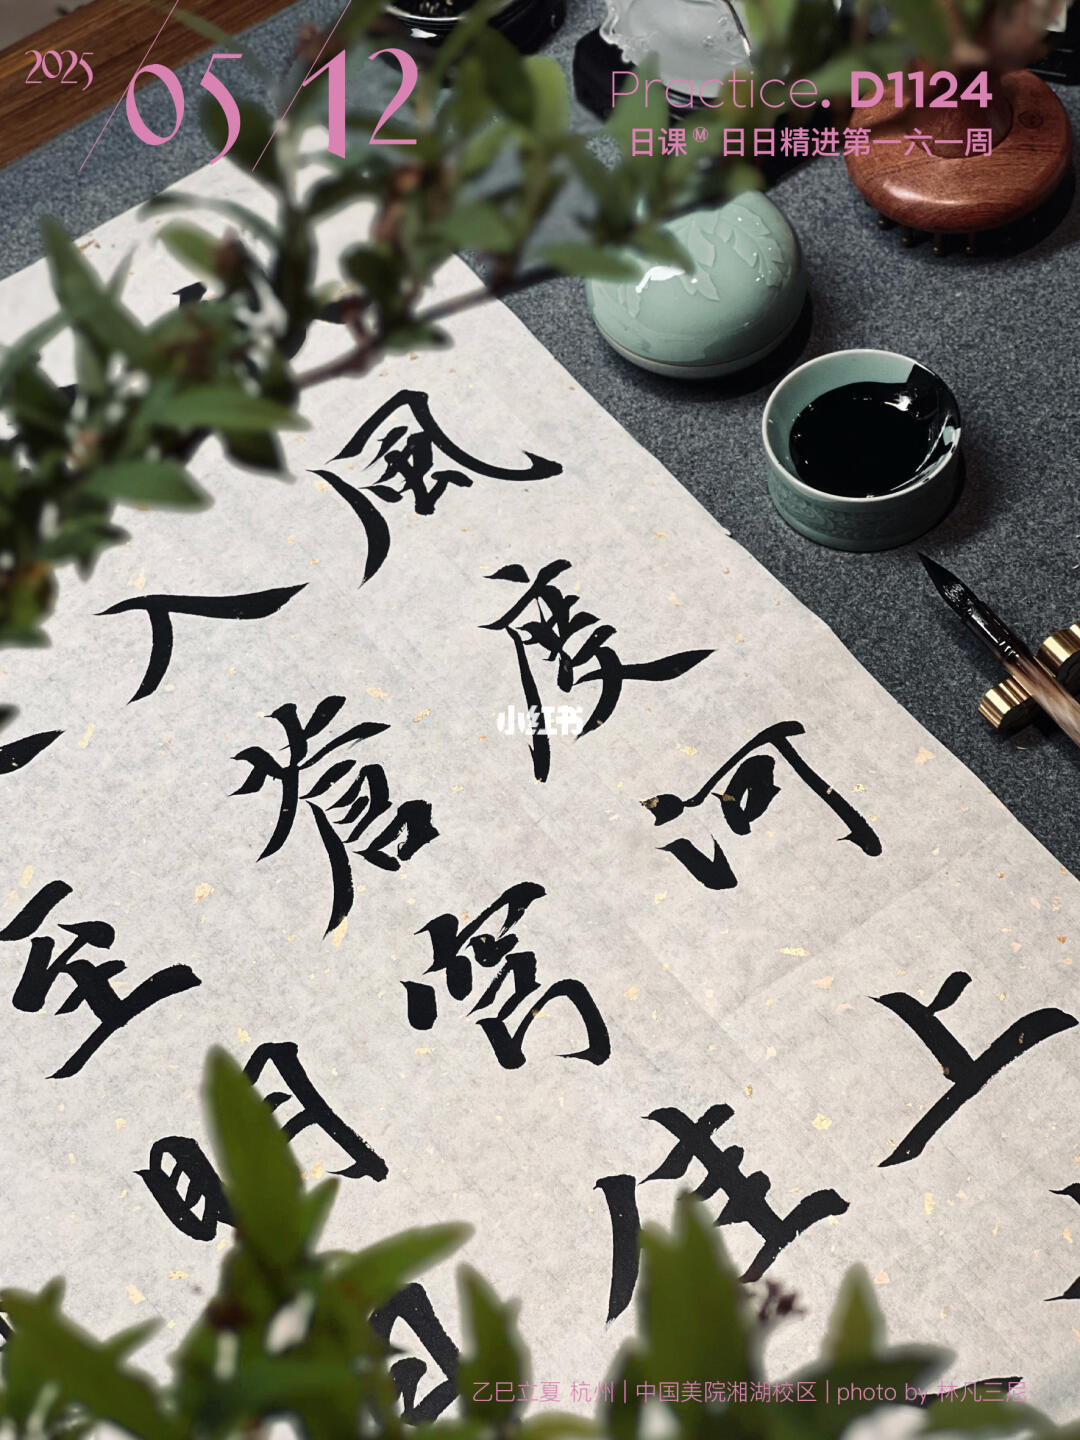 2025/05/12
Practice. D1124
日课Ⓜ 日日精进第一六一周
風度河上
入
佳
至明
小红书
乙巳立夏 杭州 | 中国美院湘湖校区 | photo by 林凡三尼